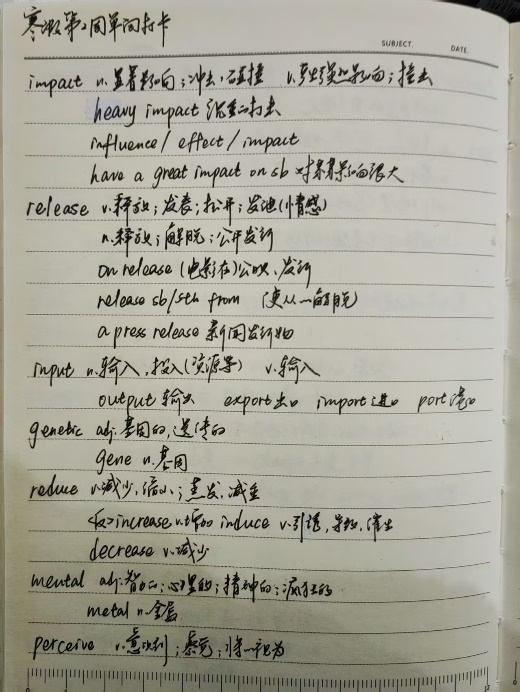 寒假第2周单词打卡
SUBJECT. DATE.
impact n.显著影响;冲击,碰撞 v.产生强烈影响;撞击
heavy impact 沉重的打击
influence / effect / impact
have a great impact on sb 对某某影响很大
release v.释放;发表;松开;发泄(情感)
n.释放;解脱;公开发行
on release (电影在)公映,发行
release sb/sth from (使从…解脱)
a press release 新闻发行
input n.输入,投入(资源等) v.输入
output 输出 export 出口 import 进口 port 港口
genetic adj.基因的,遗传的
gene n.基因
reduce v.减少,缩小;蒸发,减轻
<反>increase v.增加 induce v.引诱,导致,催生
decrease v.减少
mental adj.智力的;心理的;精神的;疯狂的
metal n.金属
perceive v.意识到;察觉;将…视为